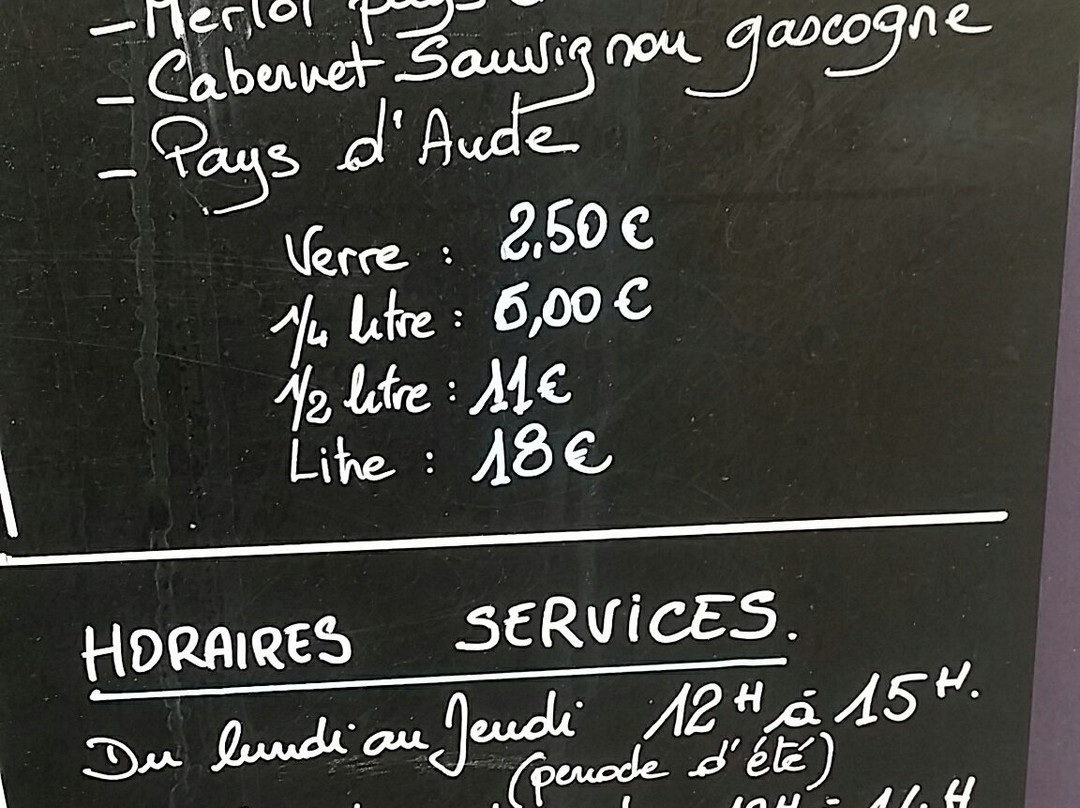 - Merlot pays
- Cabernet Sauvignon gascogne
- Pays d'Aude
Verre : 2,50 €
1/4 litre : 6,00 €
1/2 litre : 11 €
Litre : 18 €
HORAIRES SERVICES.
Du lundi au Jeudi 12H à 15H.
(periode d'été)